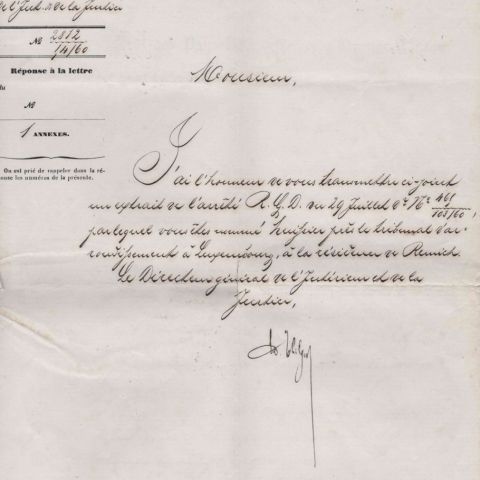 de l'Int. & de la Justice
№ 2812
74/60
Réponse à la lettre
du
№
1 ANNEXES.
On est prié de rappeler dans la ré-
ponse les numéros de la présente.
Monsieur,
J'ai l'honneur de vous transmettre ci-joint
un extrait de l'arrêté R. G. D. du 29 Juillet ct. Nº 461/103/60,
par lequel vous êtes nommé huissier près le tribunal d'ar-
rondissement à Luxembourg, à la résidence de Remich.
Le Directeur général de l'Intérieur et de la
Justice,